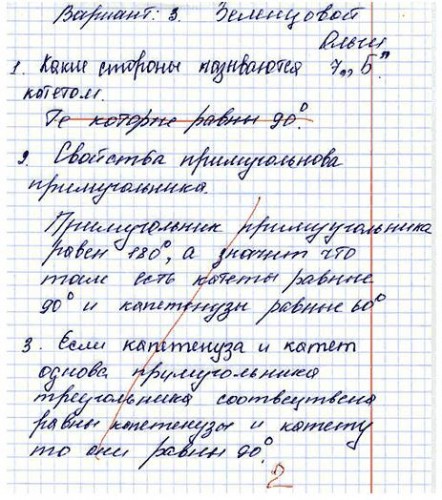 Вариант: 3. Зеленцовой
Ольги
1. Какие стороны называются 7,,Б"
катетом.
Те которие равны 90°.
2. Свойства примугольнова
примугольника.
Примугольник примуугольника
равен 180°, а значит что
там есть катеты равные
90° и капетенузы равные 60°
3. Если капетенуза и катет
однова примугольника
треугольника соотвецтвена
равны капетенузы и катету
то они равны 90°.
2